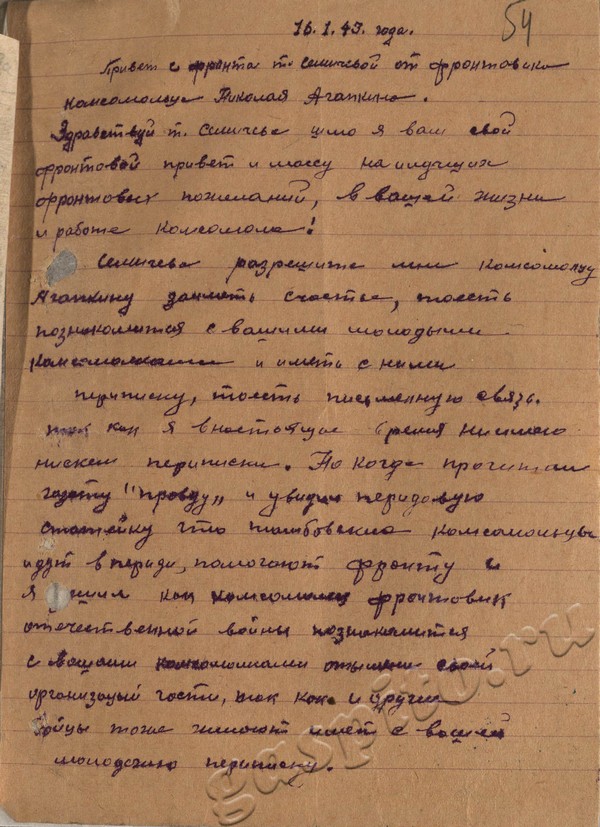 16.1.43. года.
54
Привет с фронта т. Селичевой от фронтовика
комсомольца Николая Агапкина.
Здравствуй т. Селичева шлю я вам свой
фронтовой привет и массу наилудчших
фронтовых пожеланий, в вашей жизни
и работе комсомола!
Селичева разрешите мне комсомольцу
Агапкину заиметь счастье, тоесть
познакомится с вашими молодыми
комсомолками и иметь с ними
периписку, тоесть письменную связь.
так как я внастоящие время ниимею
нискем периписки. Но когда прочитал
газету "правду" и увидил перидовую
статейку что тамбовские комсомольцы
идут впереди, помогают фронту и
я решил как комсомолец фронтовик
отечественной войны познакомится
с вашими комсомолками
организацый части, так как и другие
бойцы тоже желают имет с вашей
молодежию периписку.
gaspito.ru